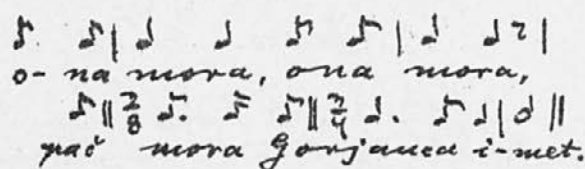 o-na mora, ona mora,
2/8 3/4
pač mora Gorjanca i-met.